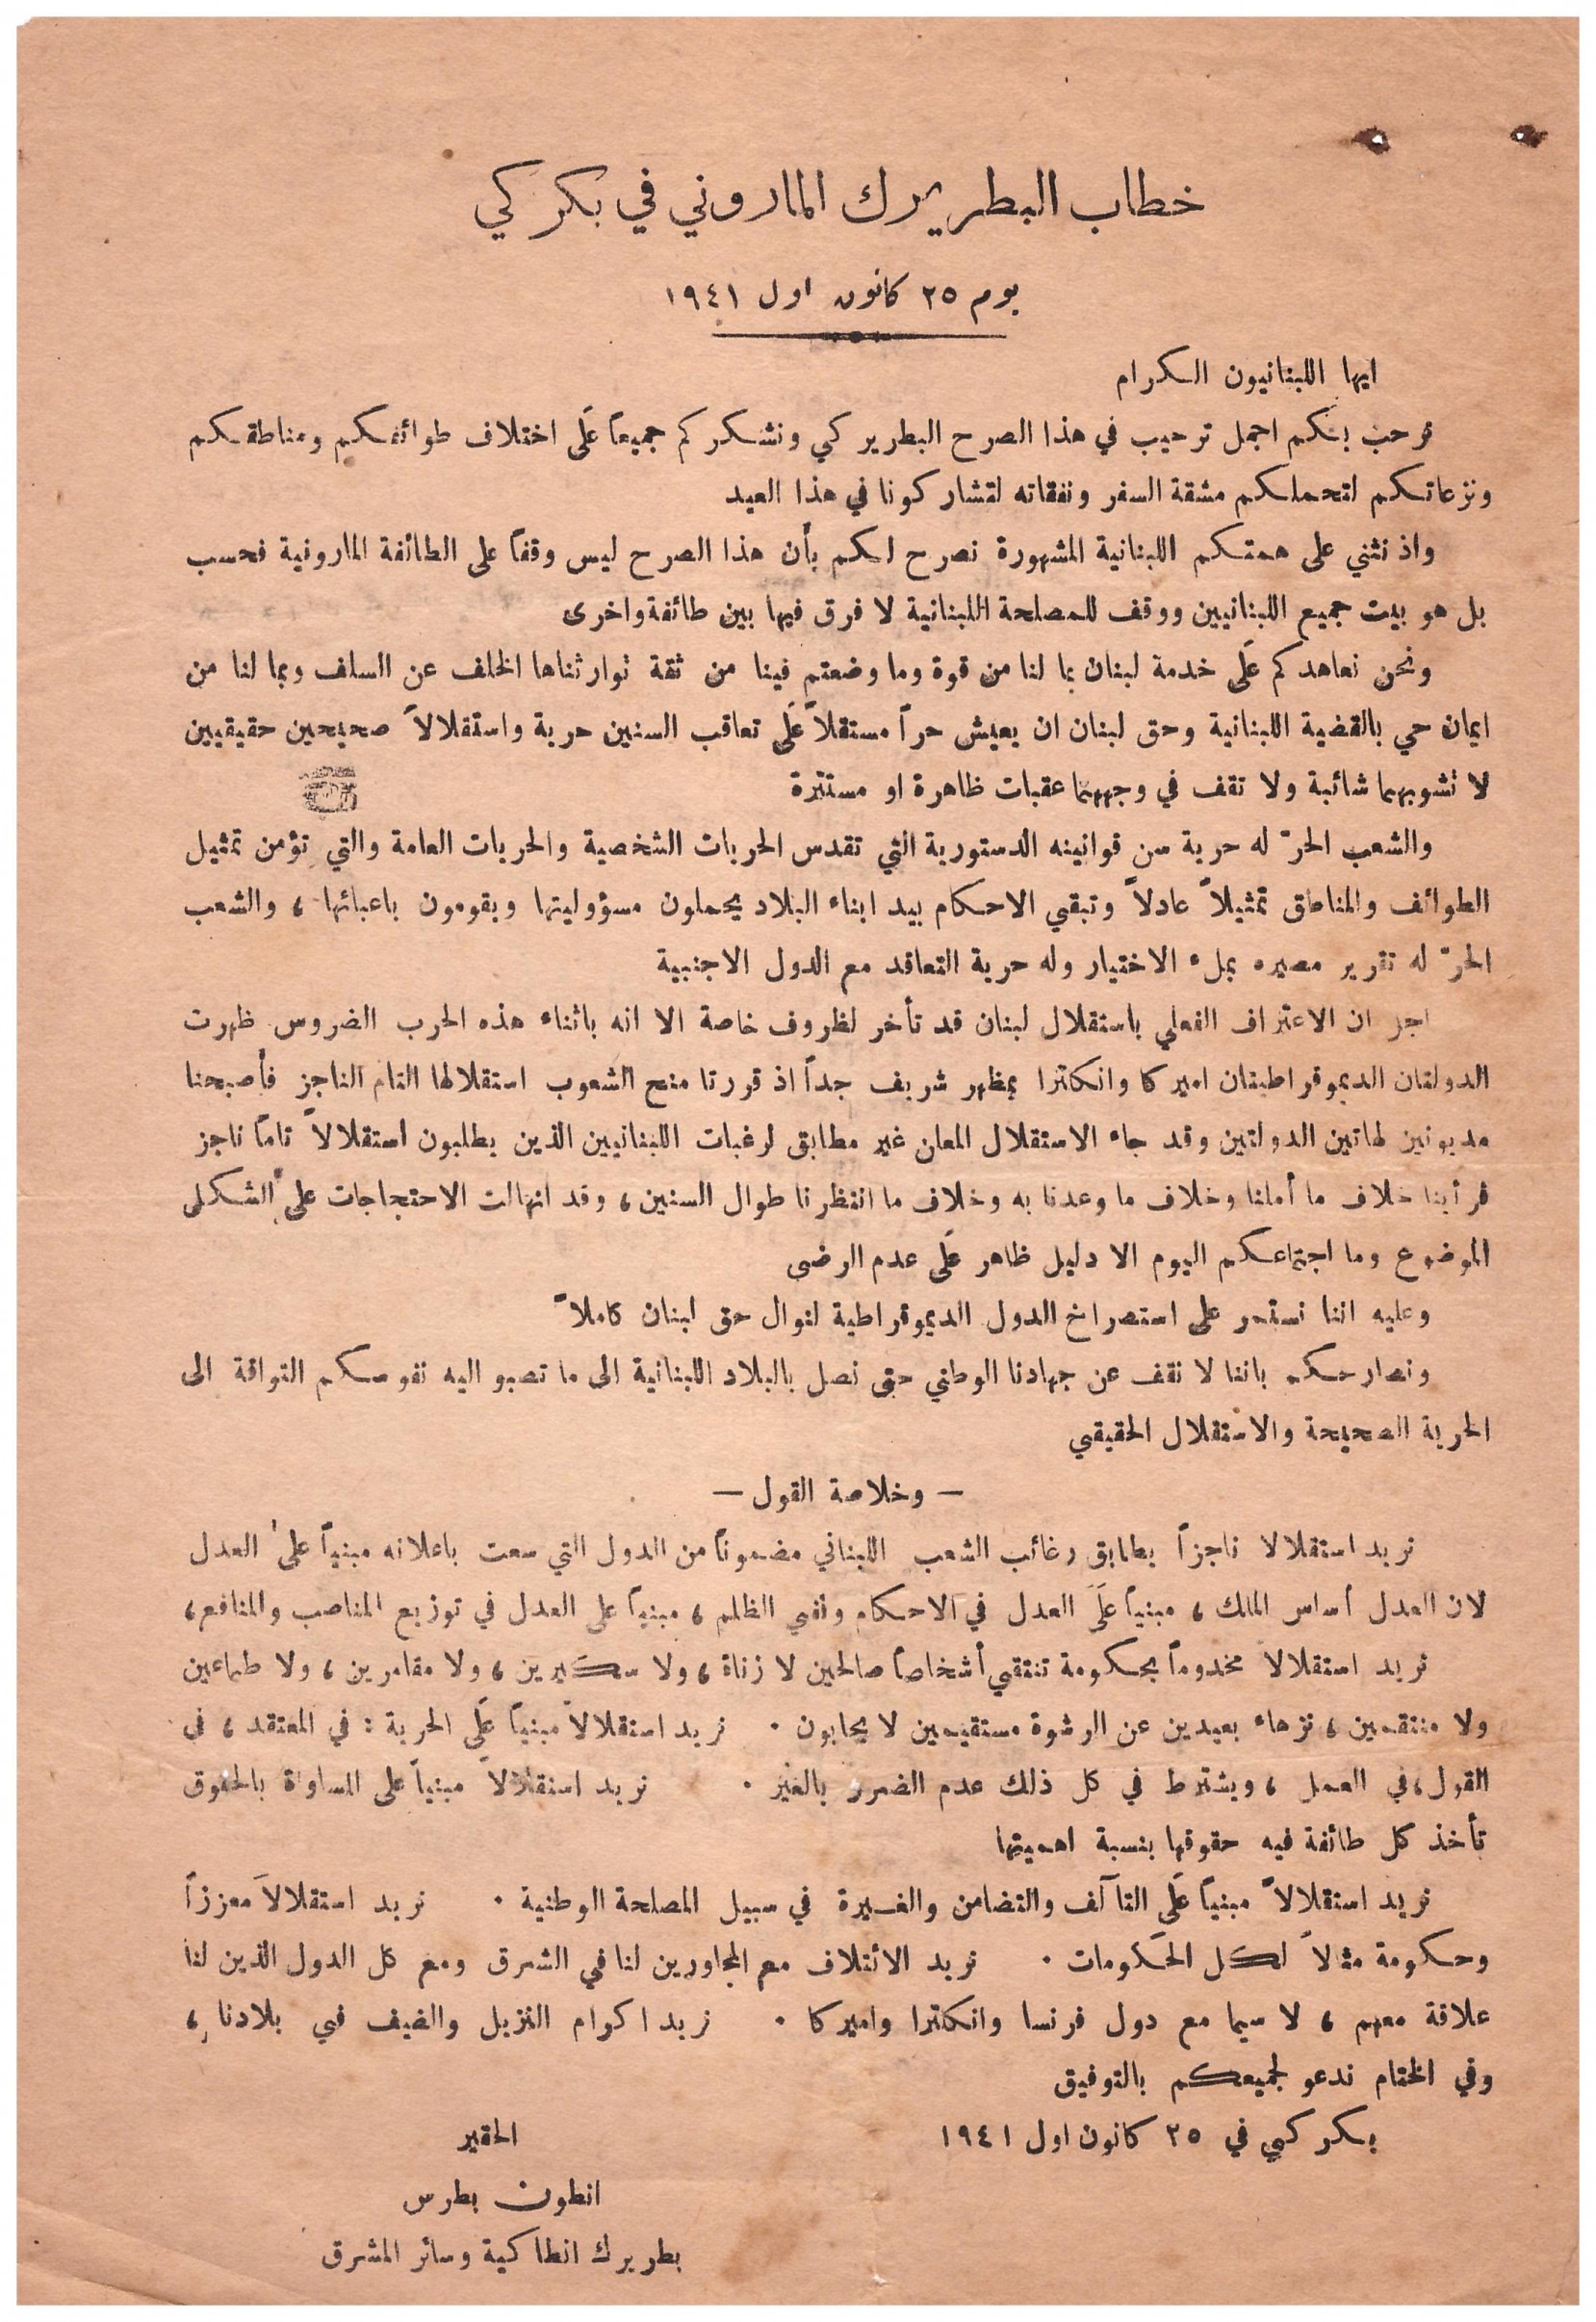 خطاب البطريرك الماروني في بكركي
يوم ٢٥ كانون اول ١٩٤١
ايها اللبنانيون الكرام
نرحب بكم اجمل ترحيب في هذا الصرح البطريركي ونشكركم جميعاً عَلَى اختلاف طوائفكم ومناطقكم
ونزعاتكم لتحملكم مشقة السفر ونفقاته لتشاركونا في هذا العيد
واذ نثني على همتكم اللبنانية المشهورة نصرح لكم بأن هذا الصرح ليس وقفاً على الطائفة المارونية فحسب
بل هو بيت جميع اللبنانيين ووقف للمصلحة اللبنانية لا فرق فيها بين طائفة واخرى
ونحن نعاهدكم عَلَى خدمة لبنان بما لنا من قوة وما وضعتم فينا من ثقة توارثناها الخلف عن السلف وبما لنا من
ايمان حي بالقضية اللبنانية وحق لبنان ان يعيش حراً مستقلاً عَلَى تعاقب السنين حرية واستقلالاً صحيحين حقيقيين
لا تشوبهما شائبة ولا تقف في وجههما عقبات ظاهرة او مستترة
والشعب الحرّ له حرية سن قوانينه الدستورية التي تقدس الحريات الشخصية والحريات العامة والتي تؤمن تمثيل
الطوائف والمناطق تمثيلاً عادلاً وتبقي الاحكام بيد ابناء البلاد يحملون مسؤوليتها ويقومون باعبائها ، والشعب
الحرّ له تقرير مصيره بملء الاختيار وله حرية التعاقد مع الدول الاجنبية
اجل ان الاعتراف الفعلي باستقلال لبنان قد تأخر لظروف خاصة الا انه باثناء هذه الحرب الضروس ظهرت
الدولتان الديموقراطيتان اميركا وانكلترا بمظهر شريف جداً اذ قررتا منح الشعوب استقلالها التام الناجز فأصبحنا
مديونين لهاتين الدولتين وقد جاء الاستقلال المعلن غير مطابق لرغبات اللبنانيين الذين يطلبون استقلالاً تاماً ناجز
فرأينا خلاف ما أملنا وخلاف ما وعدنا به وخلاف ما انتظرنا طوال السنين ، وقد انهالت الاحتجاجات على الشكل
الموضوع وما اجتماعكم اليوم الا دليل ظاهر عَلَى عدم الرضى
وعليه اننا نستمر على استصراخ الدول الديموقراطية لنوال حق لبنان كاملاً
ونصارحكم باننا لا نقف عن جهادنا الوطني حتى نصل بالبلاد اللبنانية الى ما تصبو اليه نفوسكم التواقة الى
الحرية الصحيحة والاستقلال الحقيقي
— وخلاصة القول —
نريد استقلالا ناجزاً يطابق رغائب الشعب اللبناني مضموناً من الدول التي سعت باعلانه مبنياً على العدل
لان العدل أساس الملك ، مبنياً عَلَى العدل في الاحكام ونفي الظلم ، مبنياً على العدل في توزيع المناصب والمنافع ،
نريد استقلالاً مخدوماً بحكومة تنتقي أشخاصاً صالحين لا زناة ، ولا سكيرين ، ولا مقامرين ، ولا طماعين
ولا منتقمين ، نزهاء بعيدين عن الرشوة مستقيمين لا يحابون . نريد استقلالاً مبنياً عَلَى الحرية : في المعتقد ، في
القول ، في العمل ، ويشترط في كل ذلك عدم الضرر بالغير . نريد استقلالاً مبنياً على المساواة بالحقوق
تأخذ كل طائفة فيه حقوقها بنسبة اهميتها
نريد استقلالاً مبنياً عَلَى التآلف والتضامن والغيرة في سبيل المصلحة الوطنية . نريد استقلالاً معززاً
وحكومة مثالاً لكل الحكومات . نريد الائتلاف مع المجاورين لنا في الشرق ومع كل الدول الذين لنا
علاقة معهم ، لا سيما مع دول فرنسا وانكلترا واميركا . نريد اكرام النزيل والضيف في بلادنا ،
وفي الختام ندعو لجميعكم بالتوفيق
بكركي في ٢٥ كانون اول ١٩٤١
الحقير
انطون بطرس
بطريرك انطاكية وسائر المشرق